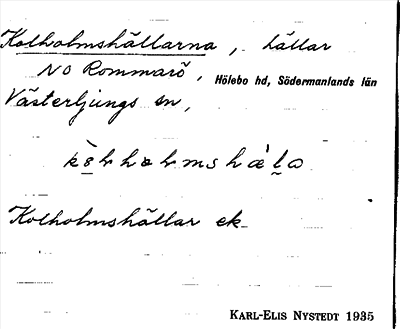 Kolholmshällarna, hällar
NO Rommarö, Hölebo hd, Södermanlands län
Västerljungs sn,
Kolholmshällar ek
KARL-ELIS NYSTEDT 1935